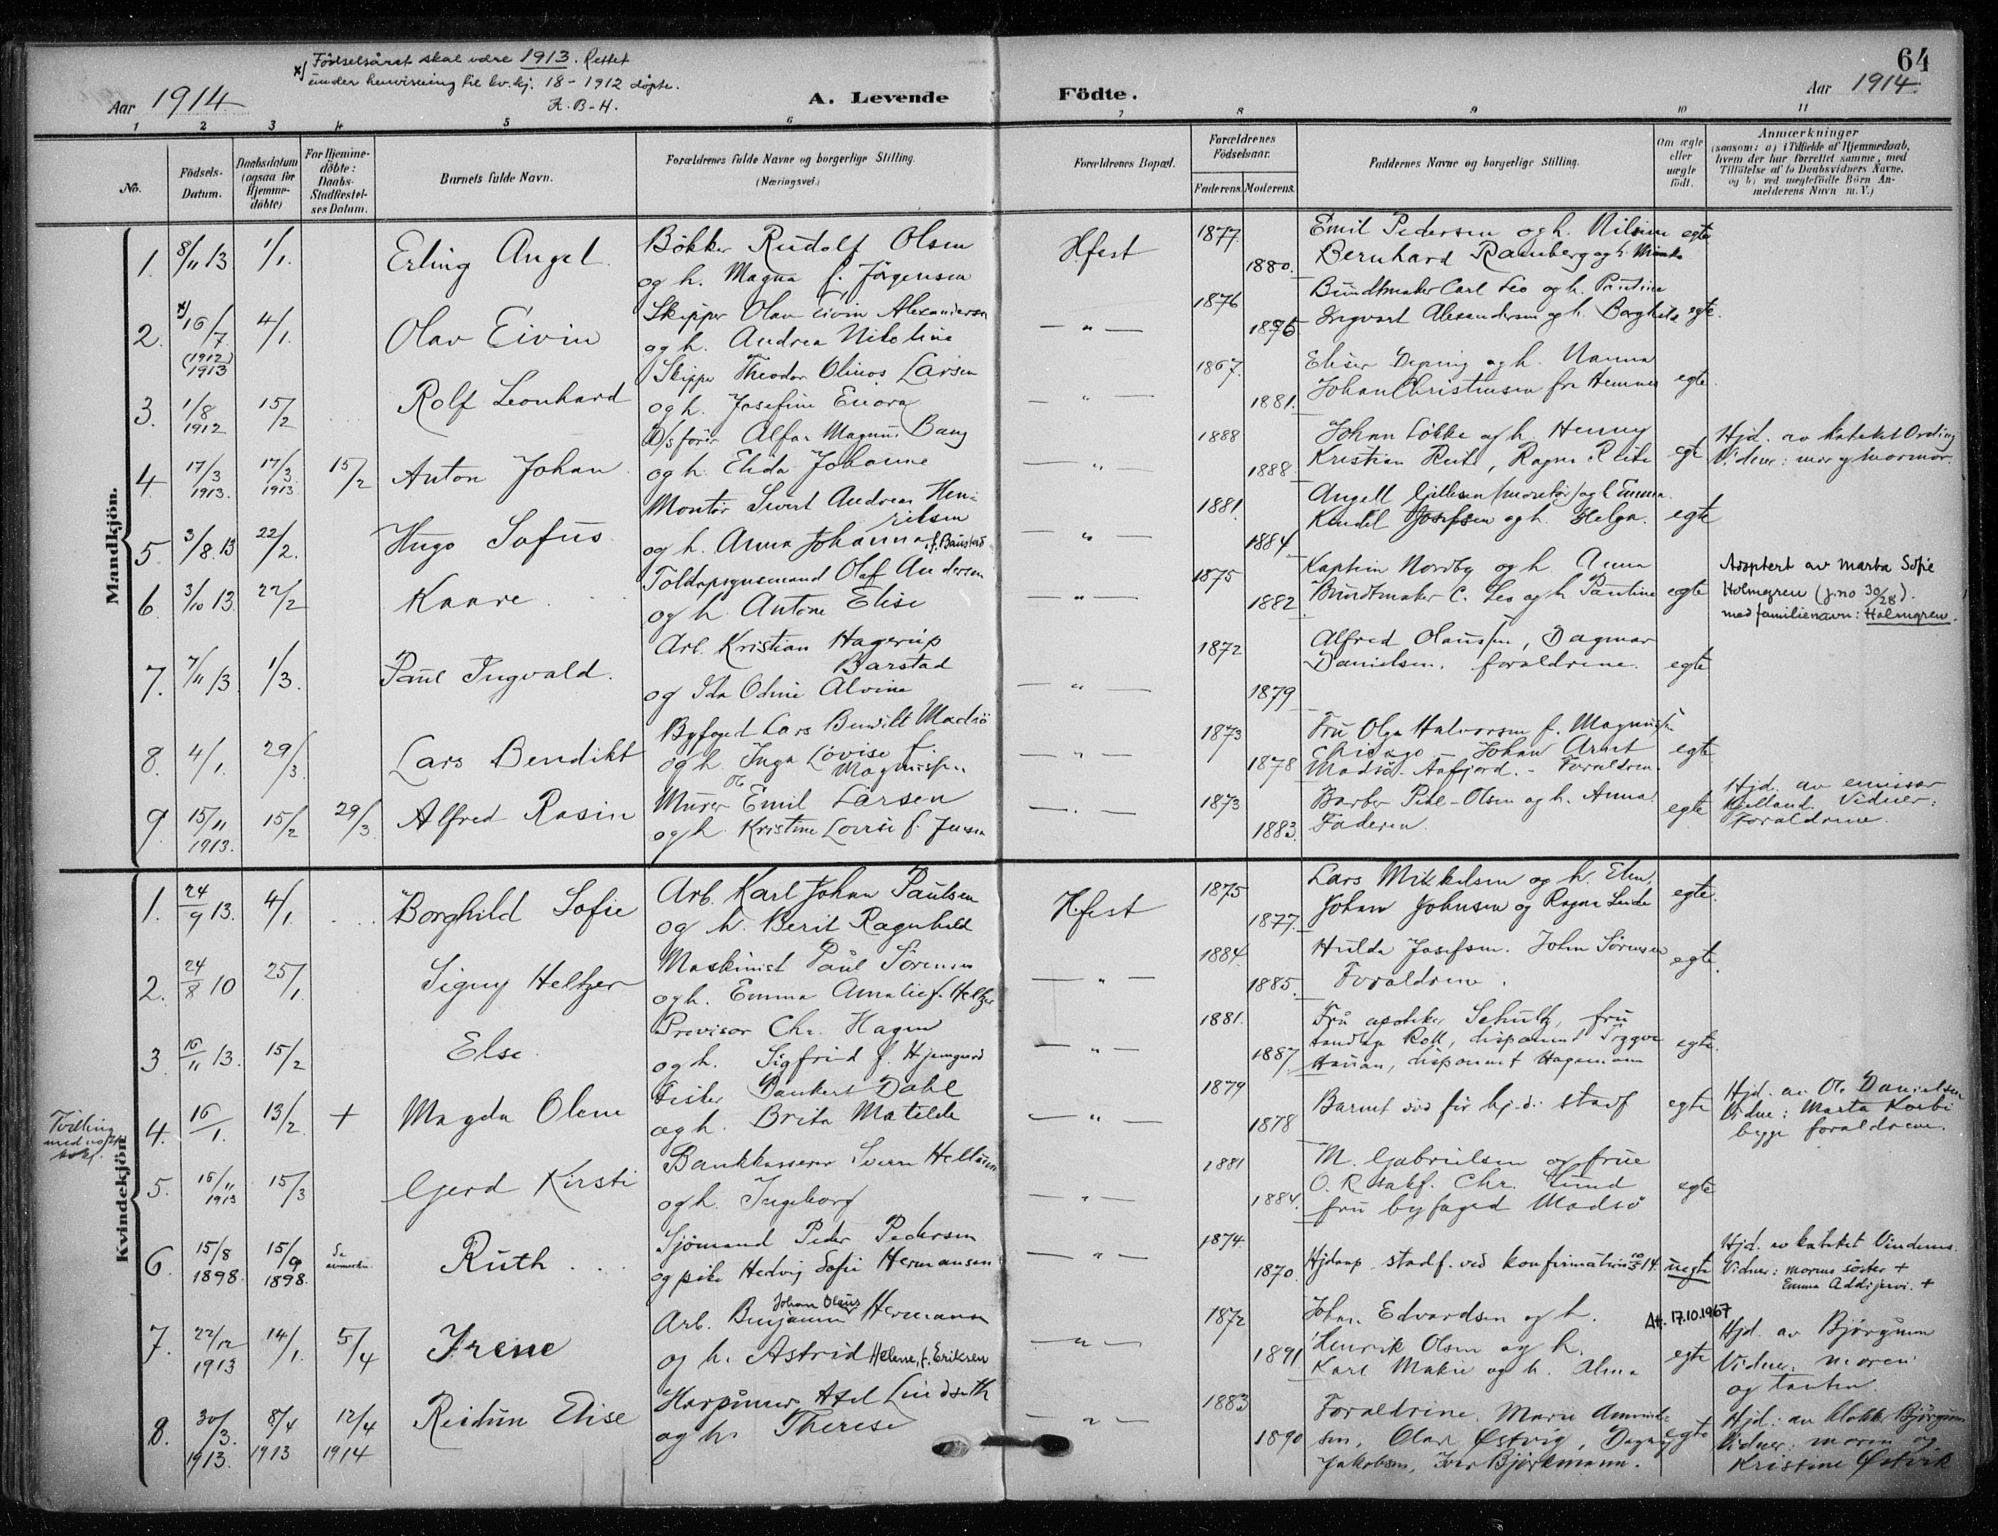 64
x) Födselsåret skal være 1913. Rettet
under henvisning til kv. hj. 18 - 1912 döpte.
H. B-H.
Aar 1914
A. Levende Födte.
Aar 1914
1 2 3 4 5 6 7 8 9 10 11
No.
Födsels-
Datum.
Daabsdatum
(ogsaa for
Hjemme-
döbte)
For Hjemme-
döbte:
Daabs-
Stadfæstel-
ses Datum.
Barnets fulde Navn.
Forældrenes fulde Navne og borgerlige Stilling.
(Næringsvei.)
Forældrenes Bopæl.
Forældrenes
Födselsaar.
Faderens. Moderens.
Faddernes Navne og borgerlige Stilling.
Om ægte
eller
uægte
födt.
Anmærkninger
(saasom: a) i Tilfælde af Hjemmedaab,
hvem der har forrettet samme, med
Tilföielse af to Daabsvidners Navne,
og b) ved uægtefödte Börn An-
melderens Navn m. V.)
Mandkjön.
1. 8/11 13 1/1. Erling Angel.
Bökker Rudolf Olsen
og h. Magna f. Jörgensen
Hfest 1877 1880.
Emil Pedersen og h. Nilsine
Bernhard Ramberg og h.
egte
2. x) 16/7 (1912) 1913 4/1. Olav Eivin
Skipper Olav Eivin Alexandersen
og h. Andrea Nikoline
— " — 1876 1876
Bundtmaker Carl Leo og h. Pauline
Ingvart Alexandersen og h. Borghild
egte.
3. 1/8 1912 15/2 Rolf Leonhard
Skipper Theodor Olinos Larsen
og h. Josefine Enora
— " — 1867. 1881.
og h. Nanna
Johan Christensen fra Hemnes
egte.
4. 17/3 1913. 17/3 1913. 15/2 Anton Johan
D/sförer Alfar Magnus Bang
og h. Elida Johanne
" 1888 1888
Johan Lökke og h. Henny
Kristian Reite, Ragna Reite
egte
Hjd. av kateket Ording
Vidner: mor og mormor.
5. 3/8. 13 22/2. Hugo Sofus
Montör Sivert Andreas Hen-
riksen
og h. Anna Johanna, f. Baustad
— " — 1881 1884
og h. Emma.
Kendel Josefsen og h. Helga.
egte
6. 3/10 13. 22/2 Kaare
Toldopsynsmand Olaf Andersen
og h. Antone Elise
— " — 1875 1882
Kaptein Nordby og h. Anna
Bundtmaker C. Leo og h. Pauline
egte
Adoptert av Marta Sofie
Holmgren (j.no 30/28).
med familienavn: Holmgren.
7. 7/11 13 1/3. Paul Ingvald.
Arb. Kristian Hagerup
Barstad
og Ida Odine Alvine
— " — 1872 1879
Alfred Olaussen, Dagmar
Danielsen. foraldrene.
egte
8. 4/1. 29/3 Lars Bendikt
Byfoged Lars Bendikt Madsö
og h. Inga Lovise f.
Magnussen
— " — 1873 1878
Fru Olga Halvorsen f. Magnussen
Chicago - Johan Arnt
Madsö - Aafjord. - Foraldrene.
egte
9 15/11 1913. 15/2 29/3 Alfred Rosin
Murer Ole Emil Larsen
og h. Kristine Lovise f. Jensen
— " — 1873 1883.
Barber Olsen og h. Anna
Faderen.
egte
Hjd. av emissær
Kjelland. Vidner:
Foraldrene.
Kvindekjön
1. 24/9 13. 4/1. Borghild Sofie
Arb. Karl Johan Paulsen
og h. Berit Ragnhild
Hfest 1875 1877.
Lars Mikkelsen og h. Elen.
Johan Johnsen og Ragna
egte.
2. 24/8 10 25/1. Signy Heltzer
Maskinist Paul Sörensen
og h. Emma Amalie f. Heltzer
— " — 1884. 1885.
Hulda Josefsen. John Sörensen
Foraldrene.
egte.
3 16/11 13. 15/2 Else.
Provisor Chr. Hagen
og h. Sigfrid f. Hjemgaard
— " — 1881. 1887
Fru apoteker Schultz, fru
Roll, disponent Trygve
disponent Hagemann
egte.
Tvilling
4. 16/1. 13/2 + Magda Olene
Fisker Dankert Dahl
og h. Brita Matilde
— " — 1879 1878
Barnet död för hj.d. stadf
egte
Hjd. av O. Danielsen
Vidne: Marta Korbi
begge foraldrene.
5. 16/11 1913 15/3 Gerd Kirsti
Bankkasserer Sverre
og h. Ingeborg
— " — 1881 1884.
M. Gabrielsen og frue
O. R. sakf. Chr. Lund
fru byfoged Madsö
egte
6. 15/8 1898. 15/9 1898. Se anmerkn. Ruth
Sjömand Peder Pedersen
og pike Hedvig Sofie Hermansen
— " — 1874. 1870.
Hjdaap stadf. ved konfirmation 14.
uegte
Hjd. av kateket
Vidner: morens söster +
Emma +
7. 22/12 1913 14/1. 5/4 Irene
Arb. Benjamin Johan Olaus Hermansen
og h. Astrid Helene, f. Eriksen
— " — 1872 1891
Johan Edvardsen og h.
Henrik Olsen og h.
Karl Makie og h. Alma
Att. 17.10.1967
egte
Hjd. av Björgum
Vidner: moren
og tanten.
8. 30/3. 1913. 8/4 1913 12/4 1914 Reidun Elise
Harpuner Axel Lindseth
og h. Therese
— " — 1883 1890
Foraldrene. Marie
sen, Olar Östvig, Dagny
Jakobsen, Iver Björkmann.
egte
Hjd: av klokker Björgum
Vidner: moren og
Kristine Östvik